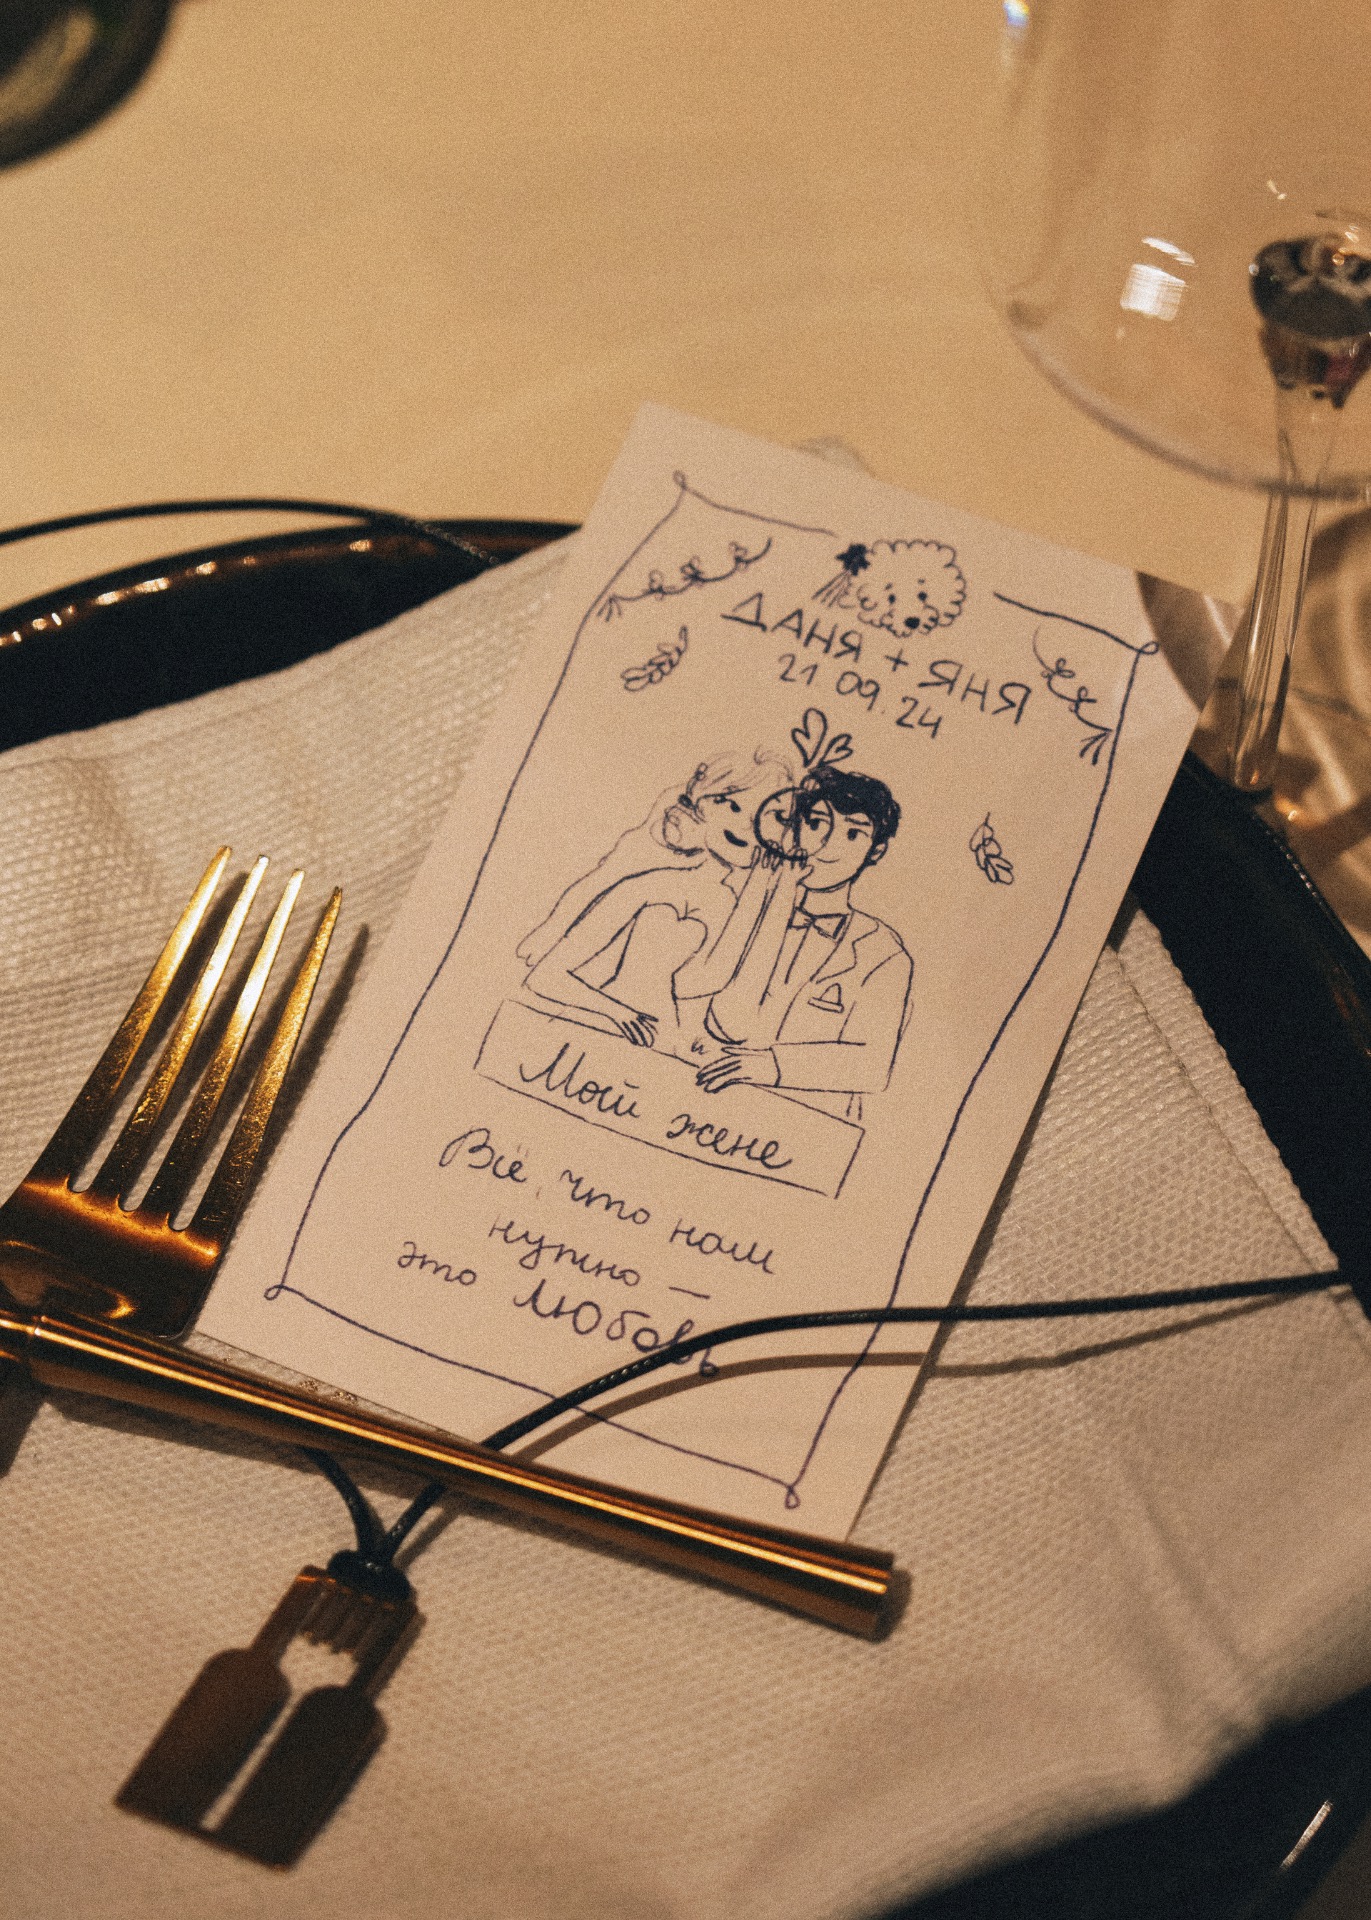 ДАНЯ + ЯНЯ
21 09. 24
Моей жене
Всё, что нам
нужно —
это Любовь